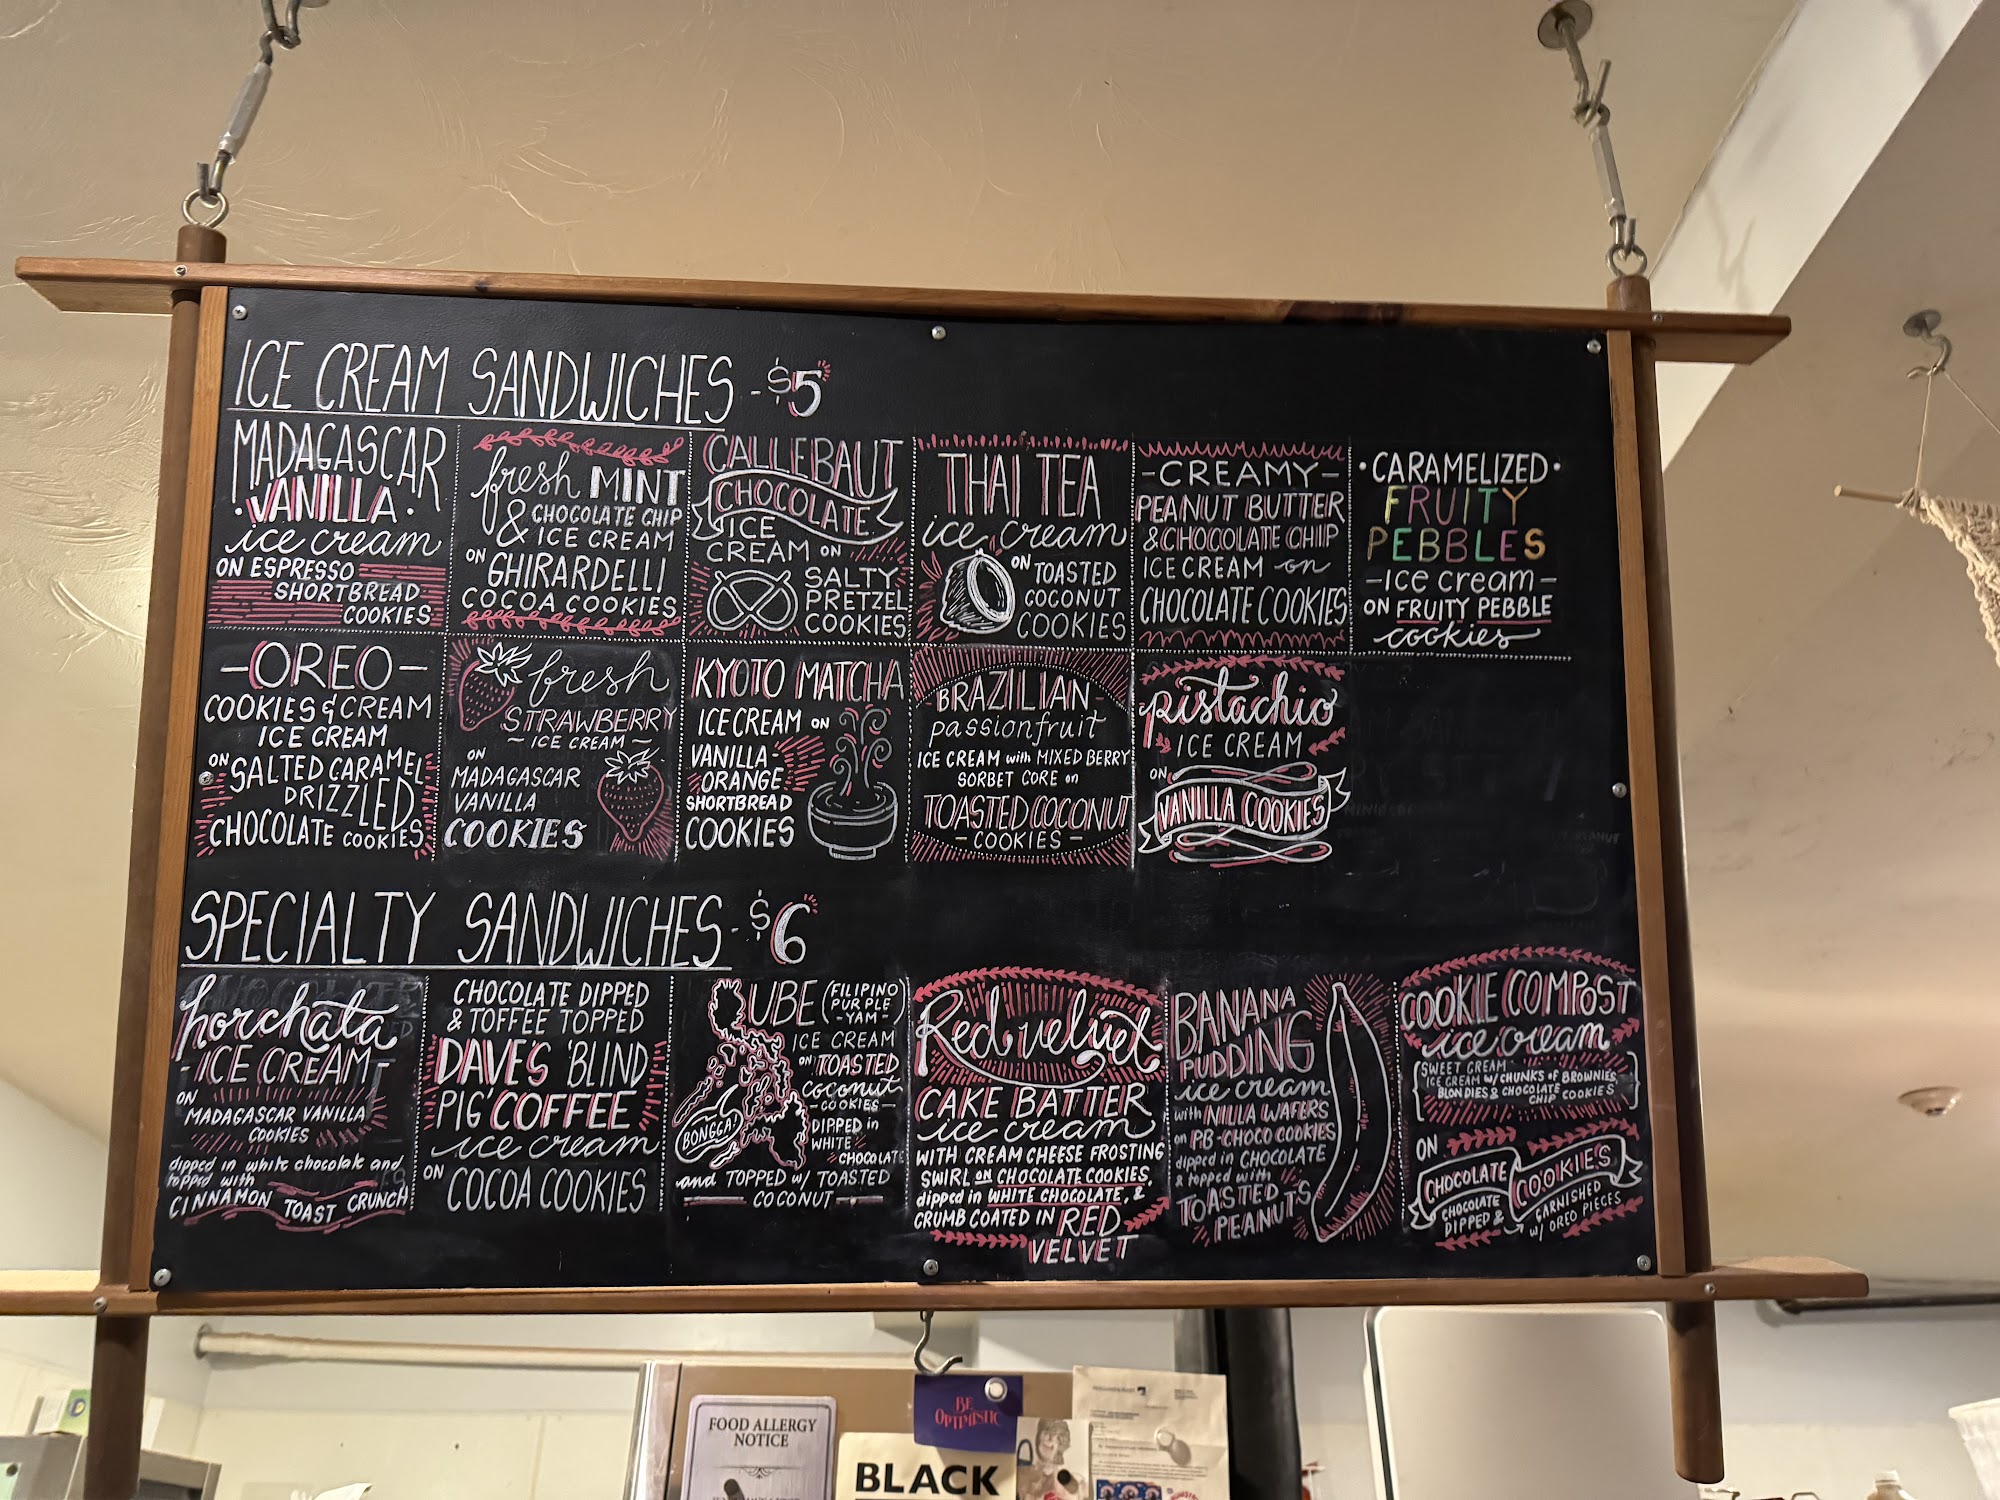 ICE CREAM SANDWICHES - $5
MADAGASCAR
·VANILLA·
ice cream
ON ESPRESSO
SHORTBREAD
COOKIES
fresh MINT
& CHOCOLATE CHIP
ICE CREAM
ON GHIRARDELLI
COCOA COOKIES
CALLEBAUT
CHOCOLATE
ICE
CREAM ON
SALTY
PRETZEL
COOKIES
THAI TEA
ice cream
ON TOASTED
COCONUT
COOKIES
-CREAMY-
PEANUT BUTTER
& CHOCOLATE CHIP
ICE CREAM on
CHOCOLATE COOKIES
·CARAMELIZED·
FRUITY
PEBBLES
-ice cream-
ON FRUITY PEBBLE
cookies
-OREO-
COOKIES & CREAM
ICE CREAM
ON SALTED CARAMEL
DRIZZLED
CHOCOLATE COOKIES
fresh
STRAWBERRY
~ ICE CREAM ~
ON
MADAGASCAR
VANILLA
COOKIES
KYOTO MATCHA
ICE CREAM ON
VANILLA-
ORANGE
SHORTBREAD
COOKIES
BRAZILIAN
passionfruit
ICE CREAM with MIXED BERRY
SORBET CORE on
TOASTED COCONUT
- COOKIES -
pistachio
ICE CREAM
ON
VANILLA COOKIES
SPECIALTY SANDWICHES - $6
horchata
-ICE CREAM-
ON
MADAGASCAR VANILLA
COOKIES
dipped in white chocolate and
topped with
CINNAMON TOAST CRUNCH
CHOCOLATE DIPPED
& TOFFEE TOPPED
DAVE'S 'BLIND
PIG' COFFEE
ice cream
ON COCOA COOKIES
UBE (FILIPINO
PURPLE
-YAM-)
ICE CREAM
ON TOASTED
coconut
-COOKIES-
DIPPED in
WHITE
CHOCOLATE
BONGGA!
and TOPPED w/ TOASTED
COCONUT
Red velvet
CAKE BATTER
ice cream
WITH CREAM CHEESE FROSTING
SWIRL on CHOCOLATE COOKIES,
dipped in WHITE CHOCOLATE, &
CRUMB COATED IN RED
VELVET
BANANA
PUDDING
ice cream
with NILLA WAFERS
on PB-CHOCO COOKIES
dipped in CHOCOLATE
& topped with
TOASTED
PEANUTS
COOKIE COMPOST
ice cream
[SWEET CREAM
ICE CREAM w/ CHUNKS of BROWNIES,
BLONDIES & CHOCOLATE
CHIP COOKIES]
ON
CHOCOLATE
COOKIES
CHOCOLATE
DIPPED &
GARNISHED
w/ OREO PIECES
FOOD ALLERGY
NOTICE
BE
OPTIMISTIC
BLACK